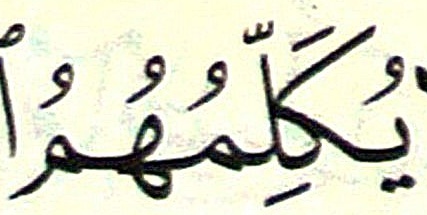 يُكَلِّمُهُمُ ٱ